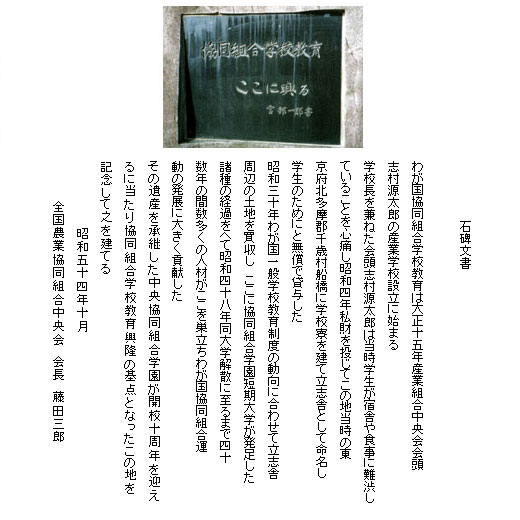 協同組合学校教育
ここに興る
宮部一郎書
石碑文書
わが国協同組合学校教育は大正十五年産業組合中央会会頭
志村源太郎の産業学校設立に始まる
学校長を兼ねた会頭志村源太郎は当時学生が宿舎や食事に難渋し
ていることを心痛し昭和四年私財を投じてこの地当時の東
京府北多摩郡千歳村船橋に学校寮を建て立志舎として命名し
学生のためにと無償で貸与した
昭和三十年わが国一般学校教育制度の動向に合わせて立志舎
周辺の土地を買収し ここに協同組合学園短期大学が発足した
諸種の経過をへて昭和四十八年同大学解散に至るまで四十
数年の間数多くの人材がここを巣立ちわが国協同組合運
動の発展に大きく貢献した
その遺産を承継した中央協同組合学園が開校十周年を迎え
るに当たり協同組合学校教育興隆の基点となったこの地を
記念して之を建てる
昭和五十四年十月
全国農業協同組合中央会 会長 藤田三郎